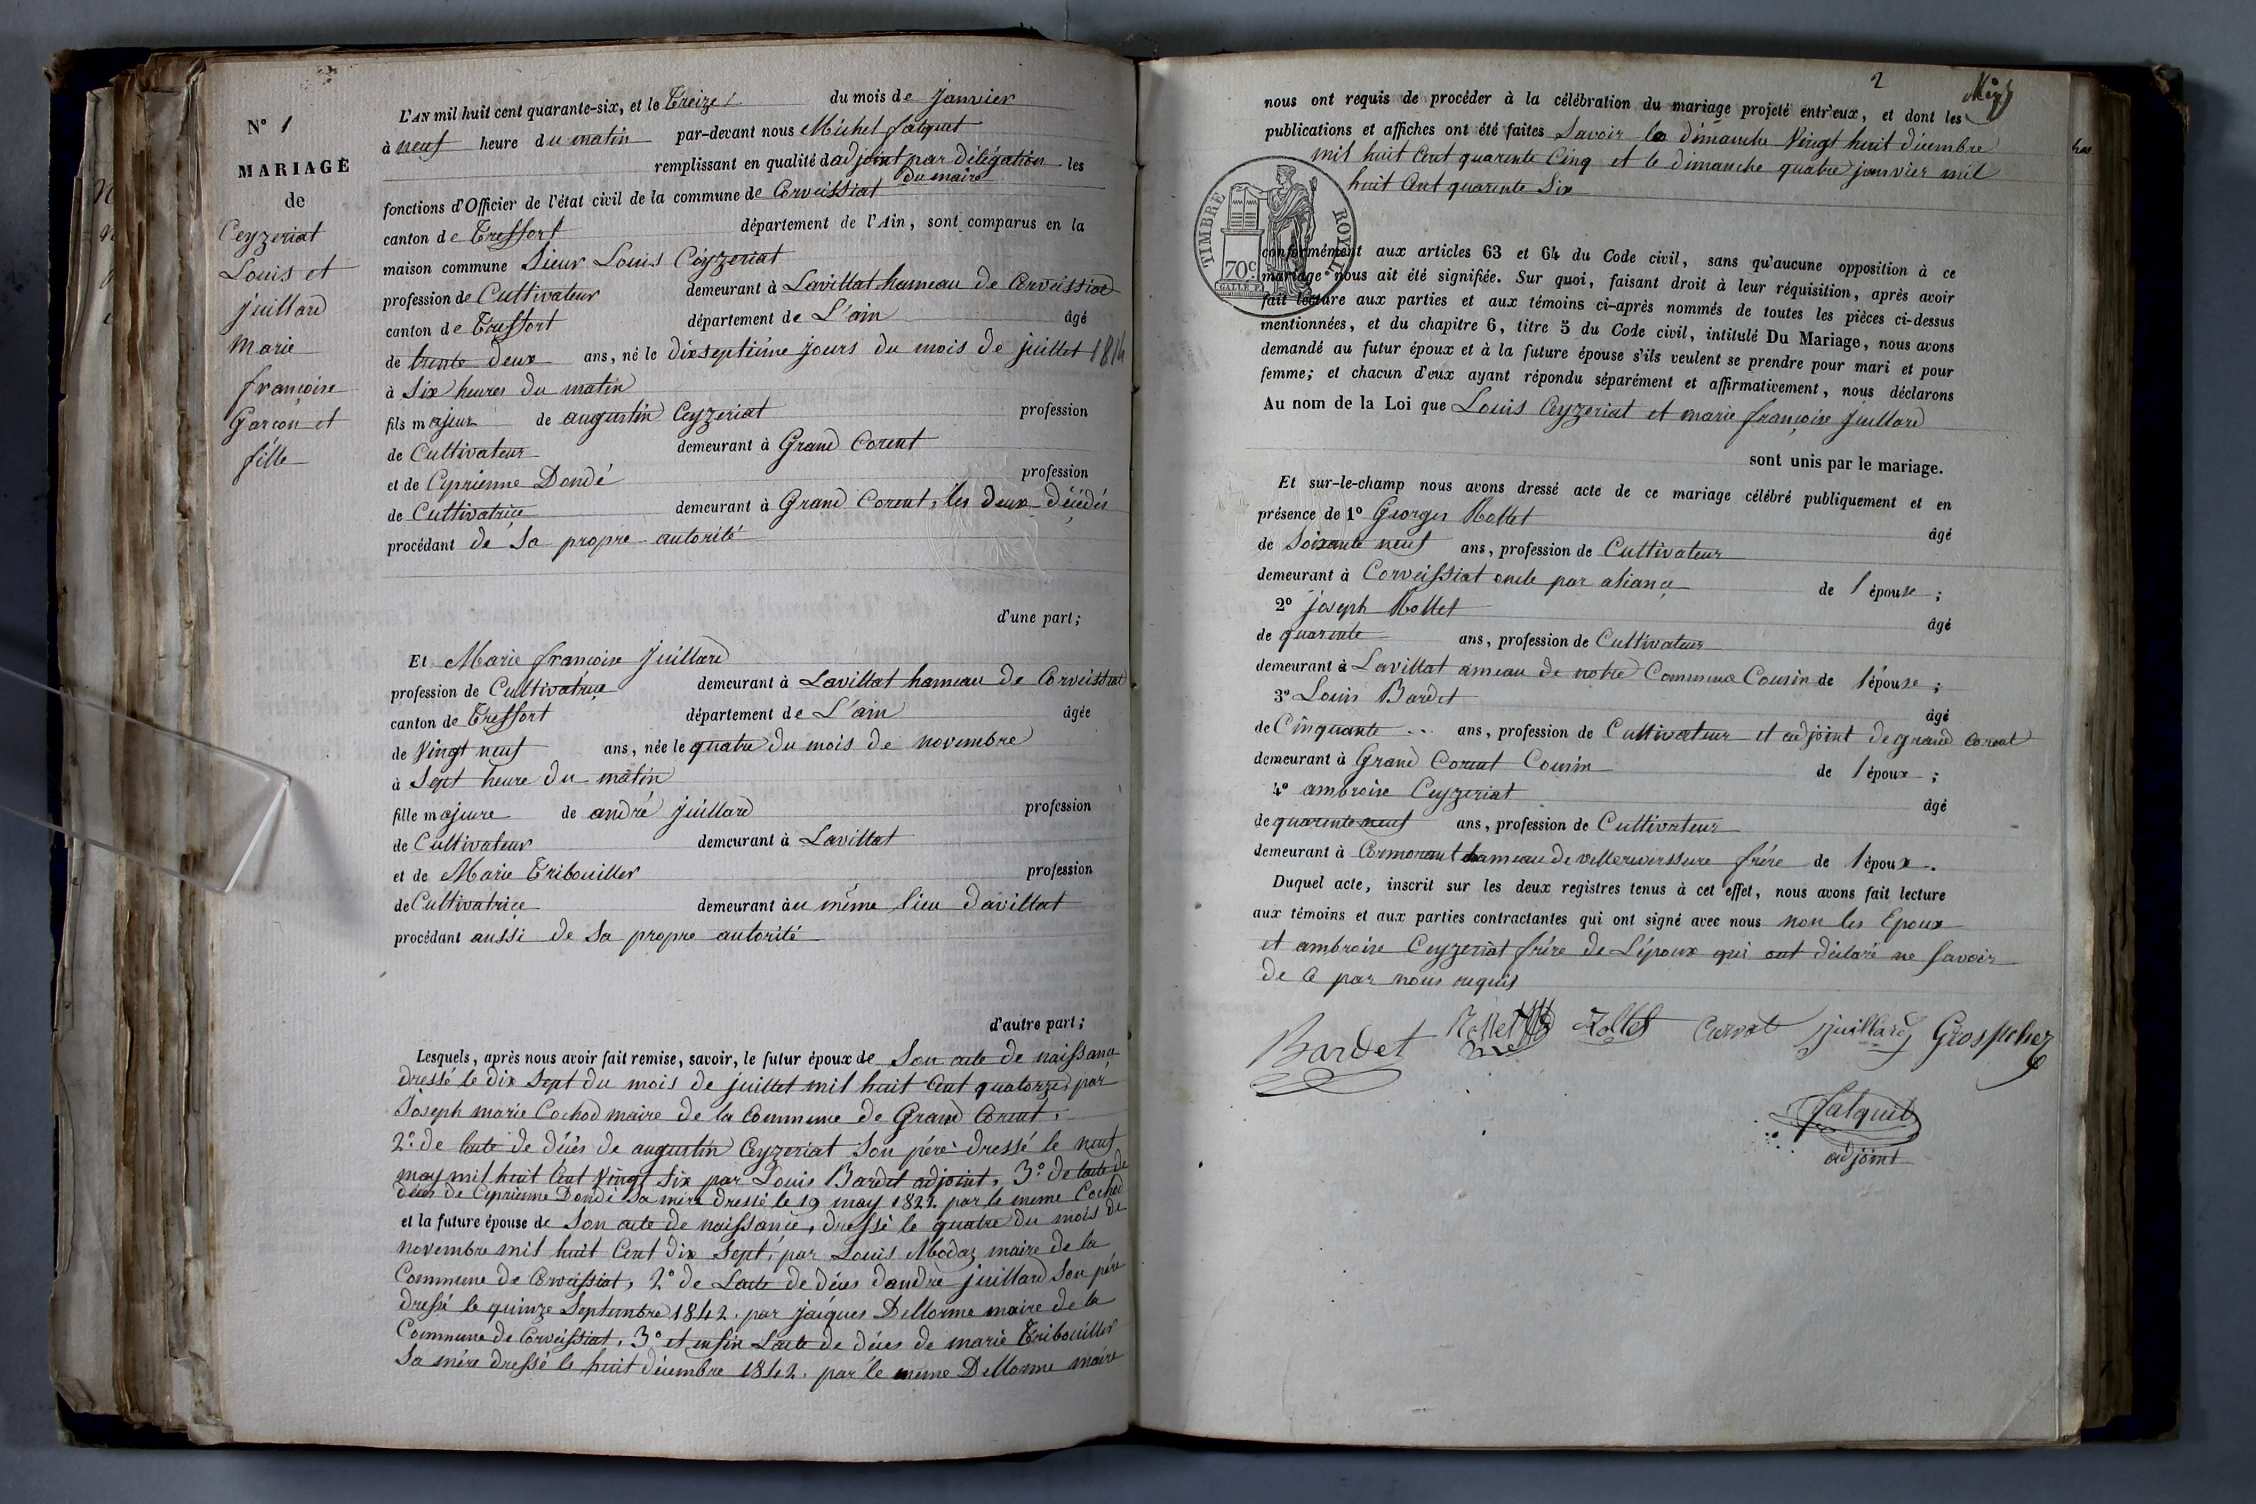 N° 1
MARIAGE
de
Ceyzeriat
Louis et
juillard
Marie
françoise
Garçon et
fille
L'AN mil huit cent quarante-six, et le Treize du mois de janvier
à neuf heure du matin par-devant nous Michel falquet
remplissant en qualité d'adjoint par délégation les
du maire
fonctions d'Officier de l'état civil de la commune de Corveissiat
canton de Treffort département de l'Ain, sont comparus en la
maison commune Sieur Louis Ceyzeriat
profession de Cultivateur demeurant à Lavillat hameau de Corveissiat
canton de Treffort département de L'ain âgé
de trente deux ans, né le dixseptième jours du mois de juillet 1814
à Six heures du matin
fils majeur de augustin Ceyzeriat profession
de Cultivateur demeurant à Grand Corent
et de Cyprienne Dondé profession
de Cultivatrice demeurant à Grand Corent, les deux décédés
procédant de Sa propre autorité
d'une part;
Et Marie françoise juillard
profession de Cultivatrice demeurant à Lavillat hameau de Corveissiat
canton de Treffort département de L'ain âgée
de Vingt neuf ans, née le quatre du mois de novembre
à Sept heure du matin
fille majeure de andré juillard profession
de Cultivateur demeurant à Lavillat
et de Marie Tribouiller profession
de Cultivatrice demeurant au même lieu davillat
procédant aussi de Sa propre autorité
d'autre part;
Lesquels, après nous avoir fait remise, savoir, le futur époux de Son acte de naissance
dressé le dix Sept du mois de juillet mil huit Cent quatorze, par
Joseph marie Cochod maire de la Commune de Grand Corent,
2.° de lacte de décès de augustin Ceyzeriat Son père dressé le neuf
may mil huit Cent Vingt Six par Louis Bardet adjoint, 3.° de lacte de
décès de Cyprienne Dondé Sa mère dressé le 19 may 1822 par le meme Cochod
et la future épouse de Son acte de naissance, dressé le quatre du mois de
novembre mil huit Cent dix Sept, par Louis Modaz maire de la
Commune de Corveissiat, 2° de Lacte de décès dandré juillard Son père
dressé le quinze Septembre 1842. par jacques Dellorme maire de la
Commune de Corveissiat, 3° et enfin Lacte de décès de marie Tribouiller
Sa mère dressé le huit décembre 1842. par le même Dellorme maire
2
nous ont requis de procéder à la célébration du mariage projeté entr'eux, et dont les
publications et affiches ont été faites Savoir le dimanche Vingt huit décembre
mil huit Cent quarente Cinq et le dimanche quatre janvier mil
huit Cent quarente Six
TIMBRE ROYAL
70c
conformément aux articles 63 et 64 du Code civil, sans qu'aucune opposition à ce
mariage nous ait été signifiée. Sur quoi, faisant droit à leur réquisition, après avoir
fait lecture aux parties et aux témoins ci-après nommés de toutes les pièces ci-dessus
mentionnées, et du chapitre 6, titre 5 du Code civil, intitulé Du Mariage, nous avons
demandé au futur époux et à la future épouse s'ils veulent se prendre pour mari et pour
femme; et chacun d'eux ayant répondu séparément et affirmativement, nous déclarons
Au nom de la Loi que Louis Ceyzeriat et marie françoise juillard
sont unis par le mariage.
Et sur-le-champ nous avons dressé acte de ce mariage célébré publiquement et en
présence de 1° Georges Rollet âgé
de Soixante neuf ans, profession de Cultivateur
demeurant à Corveissiat oncle par aliance de l'épouse;
2° joseph Rollet âgé
de quarente ans, profession de Cultivateur
demeurant à Lavillat ameau de notre Commune Cousin de l'épouse;
3° Louis Bardet âgé
de Cinquante ans, profession de Cultivateur et adjoint de grand Corent
demeurant à Grand Corent Cousin de l'époux;
4° ambroise Ceyzeriat âgé
de quarente neuf ans, profession de Cultivateur
demeurant à Cormorant hameau de villereversure frère de l'époux.
Duquel acte, inscrit sur les deux registres tenus à cet effet, nous avons fait lecture
aux témoins et aux parties contractantes qui ont signé avec nous non les Epoux
et ambroise Ceyzeriat frère de L'époux qui ont déclaré ne Savoir
de ce par nous requis
Bardet Rollet Rollet juillard
falquet
adjoint